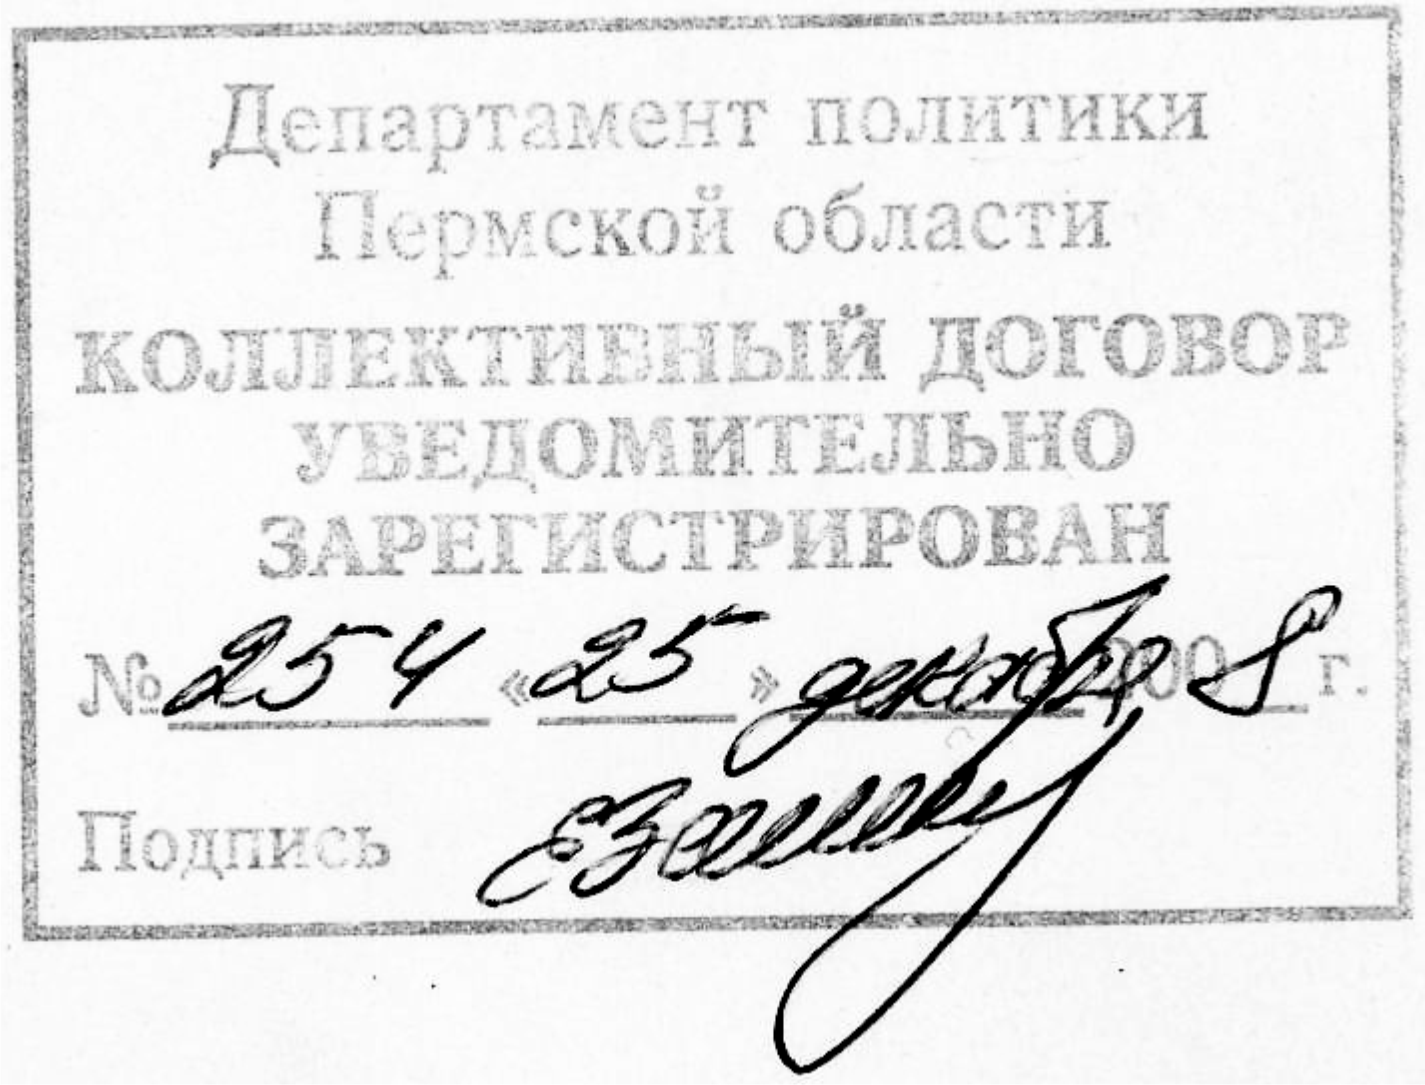 Департамент политики
Пермской области
КОЛЛЕКТИВНЫЙ ДОГОВОР
УВЕДОМИТЕЛЬНО
ЗАРЕГИСТРИРОВАН
№ 254 «25» декабря 2008 г.
Подпись